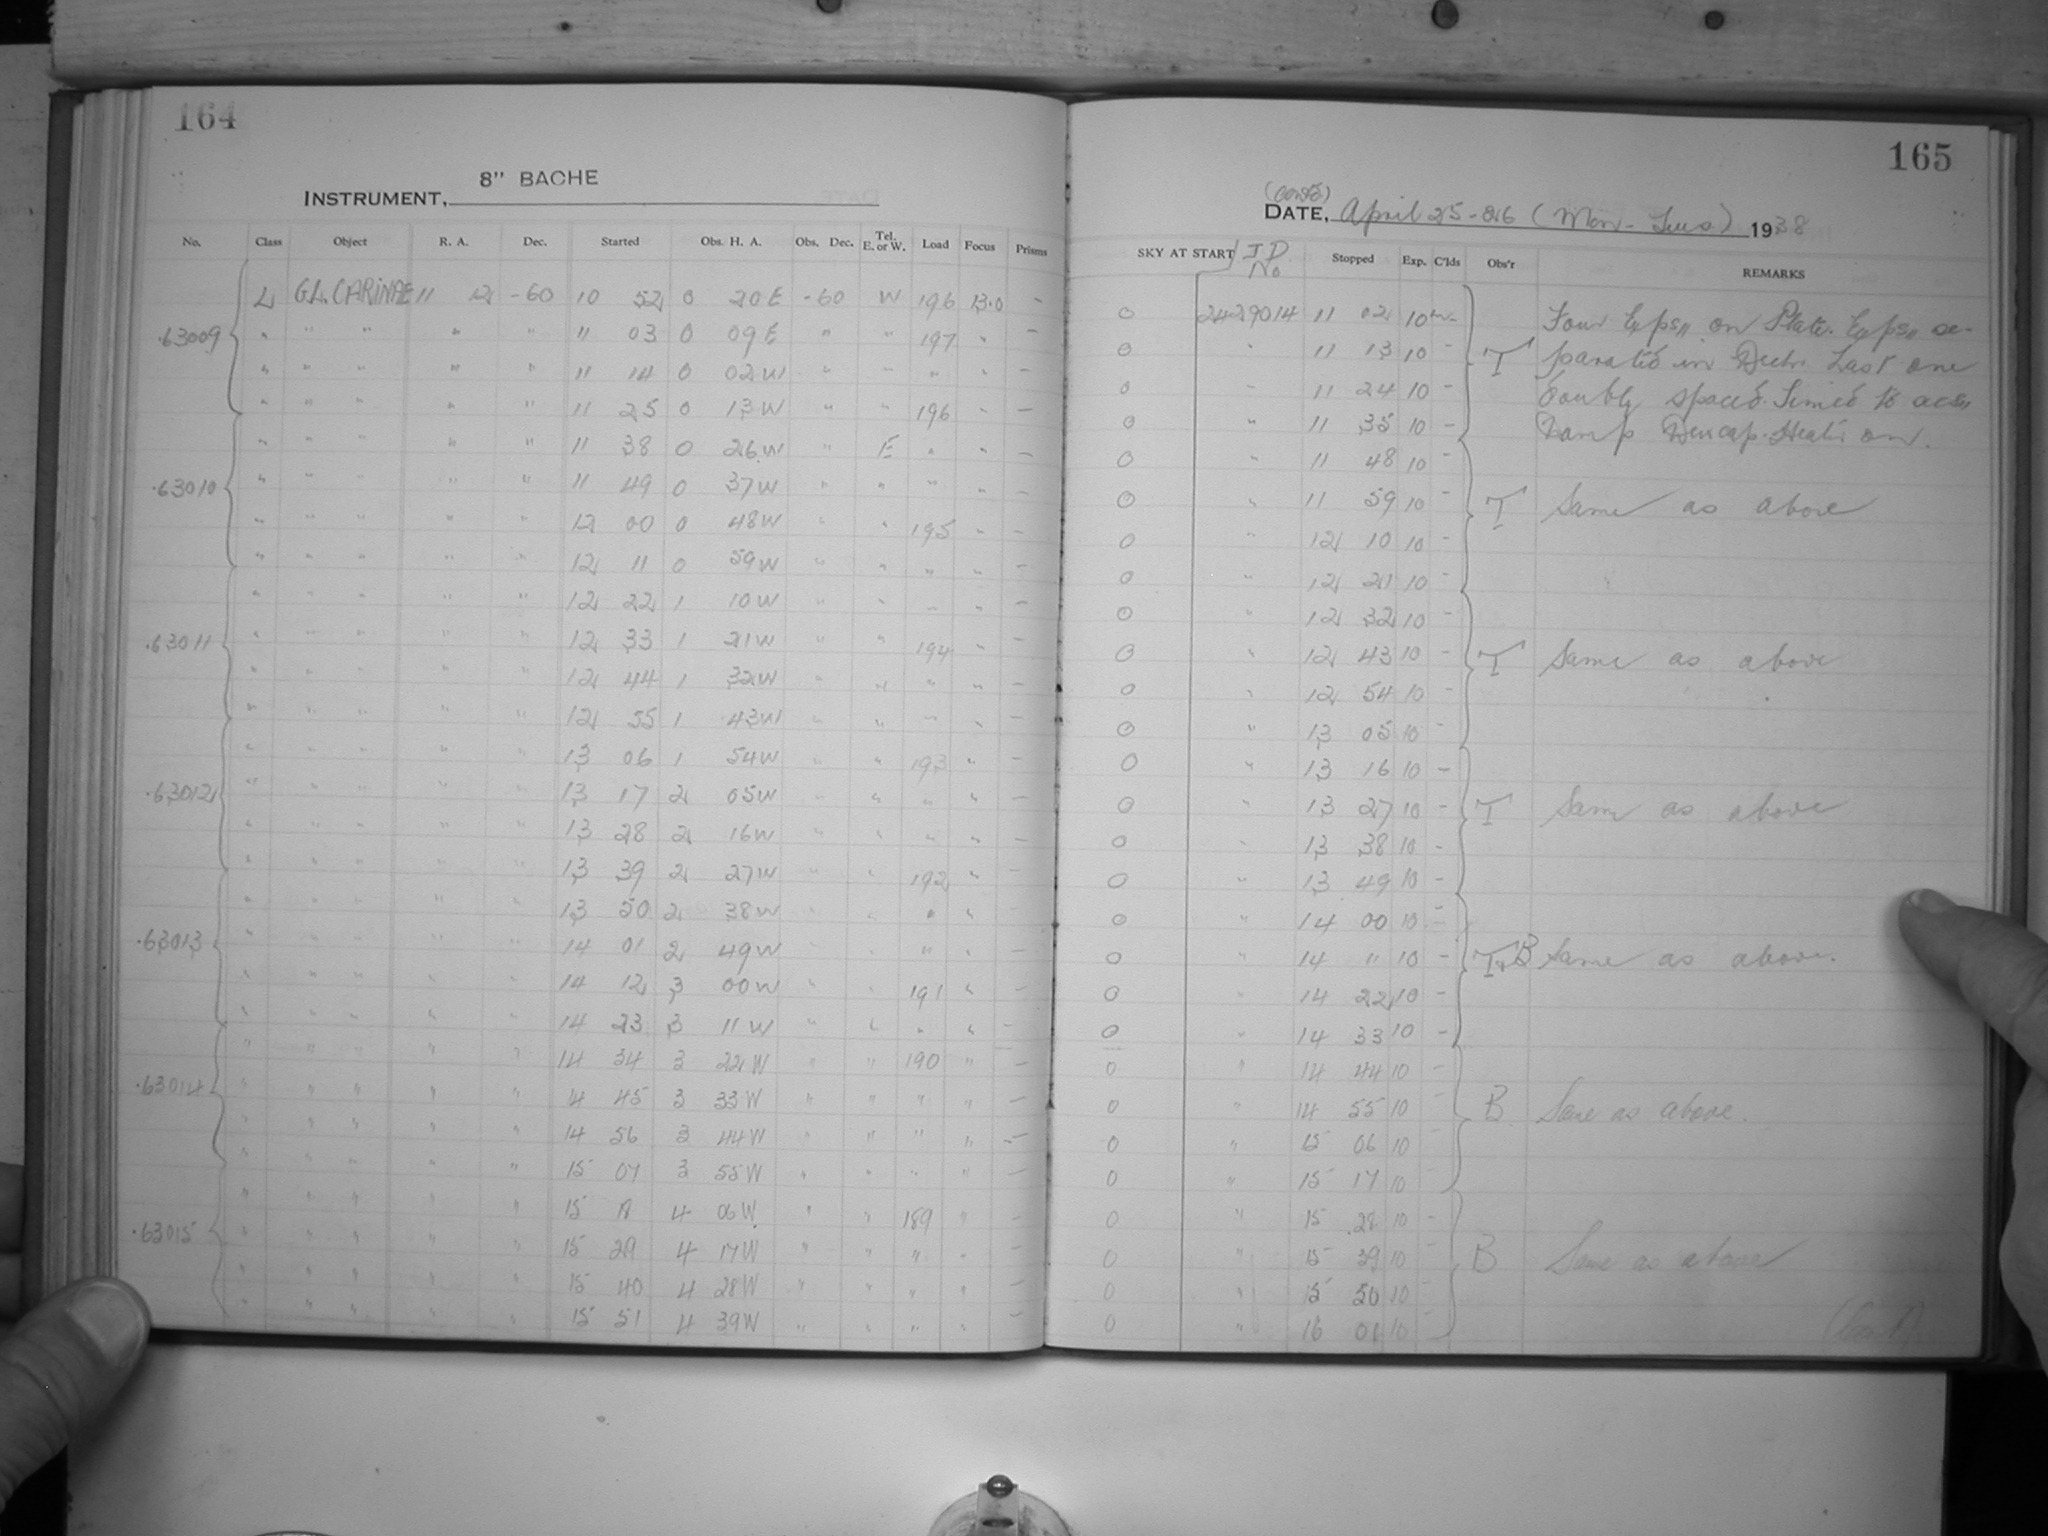 164
8" BACHE
INSTRUMENT,
No. Class Object R. A. Dec. Started Obs. H. A. Obs. Dec. Tel. E. or W. Load Focus Prisms
L GL. CARINAE 11 12 -60 10 52 0 20E -60 W 196 13.0 -
.63009 " " " " " 11 03 0 09E " " 197 " -
" " " " " 11 14 0 02W " " " " -
" " " " " 11 25 0 13W " " 196 " -
" " " " " 11 38 0 26W " E " " -
.63010 " " " " " 11 49 0 37W " " " " -
" " " " " 12 00 0 48W " " 195 " -
" " " " " 12 11 0 59W " " " " -
" " " " " 12 22 1 10W " " " " -
.63011 " " " " " 12 33 1 21W " " 194 " -
" " " " " 12 44 1 32W " " " " -
" " " " " 12 55 1 43W " " " " -
" " " " " 13 06 1 54W " " 193 " -
.63012 " " " " " 13 17 2 05W " " " " -
" " " " " 13 28 2 16W " " " " -
" " " " " 13 39 2 27W " " 192 " -
" " " " " 13 50 2 38W " " " " -
.63013 " " " " " 14 01 2 49W " " " " -
" " " " " 14 12 3 00W " " 191 " -
" " " " " 14 23 3 11W " " " " -
" " " " " 14 34 3 22W " " 190 " -
.63014 " " " " " 14 45 3 33W " " " " -
" " " " " 14 56 3 44W " " " " -
" " " " " 15 07 3 55W " " " " -
" " " " " 15 18 4 06W " " 189 " -
.63015 " " " " " 15 29 4 17W " " " " -
" " " " " 15 40 4 28W " " " " -
" " " " " 15 51 4 39W " " " " -
165
(contd)
DATE, April 25-26 (Mon-Tues) 1938
SKY AT START J D No Stopped Exp. C'lds Obs'r REMARKS
0 2429014 11 02 10m - Four Exps. on Plate. Exps. se-
0 " 11 13 10 - T parated in Decln. Last one
0 " 11 24 10 - doubly spaced. Timed to
0 " 11 35 10 - Dewcap. Heater on.
0 " 11 48 10 -
0 " 11 59 10 - T Same as above
0 " 12 10 10 -
0 " 12 21 10 -
0 " 12 32 10 -
0 " 12 43 10 - T Same as above
0 " 12 54 10 -
0 " 13 05 10 -
0 " 13 16 10 -
0 " 13 27 10 - T Same as above
0 " 13 38 10 -
0 " 13 49 10 -
0 " 14 00 10 -
0 " 14 11 10 - T+B Same as above.
0 " 14 22 10 -
0 " 14 33 10 -
0 " 14 44 10 -
0 " 14 55 10 - B Same as above.
0 " 15 06 10
0 " 15 17 10
0 " 15 28 10 -
0 " 15 39 10 - B Same as above
0 " 15 50 10 -
0 " 16 01 10 -